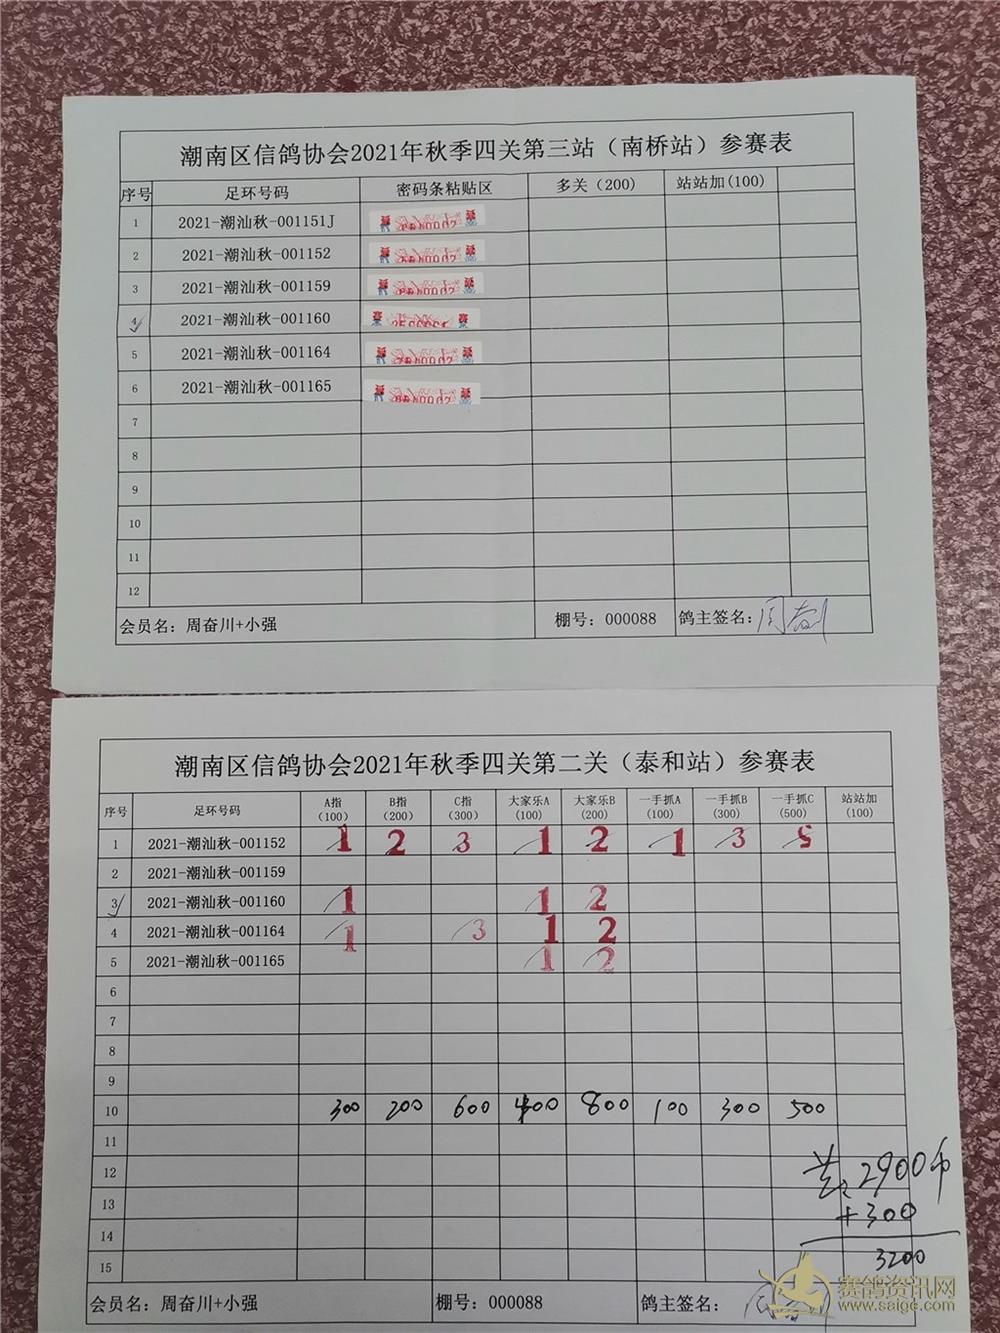 潮南区信鸽协会2021年秋季四关第三站（南桥站）参赛表
序号 足环号码 密码条粘贴区 多关（200） 站站加(100)
1 2021-潮汕秋-001151J
2 2021-潮汕秋-001152
3 2021-潮汕秋-001159
4 2021-潮汕秋-001160
5 2021-潮汕秋-001164
6 2021-潮汕秋-001165
7
8
9
10
11
12
会员名：周奋川+小强 棚号：000088 鸽主签名：
潮南区信鸽协会2021年秋季四关第二关（泰和站）参赛表
序号 足环号码 A指（100） B指（200） C指（300） 大家乐A（100） 大家乐B（200） 一手抓A（100） 一手抓B（300） 一手抓C（500） 站站加（100）
1 2021-潮汕秋-001152 1 2 3 1 2 1 3 5
2 2021-潮汕秋-001159
3 2021-潮汕秋-001160 1 1 2
4 2021-潮汕秋-001164 1 3 1 2
5 2021-潮汕秋-001165 1 2
6
7
8
9
10 300 200 600 400 800 100 300 500
11
12 2900币
13 +300
14
15 3200
会员名：周奋川+小强 棚号：000088 鸽主签名：
赛鸽资讯网
www.saige.com